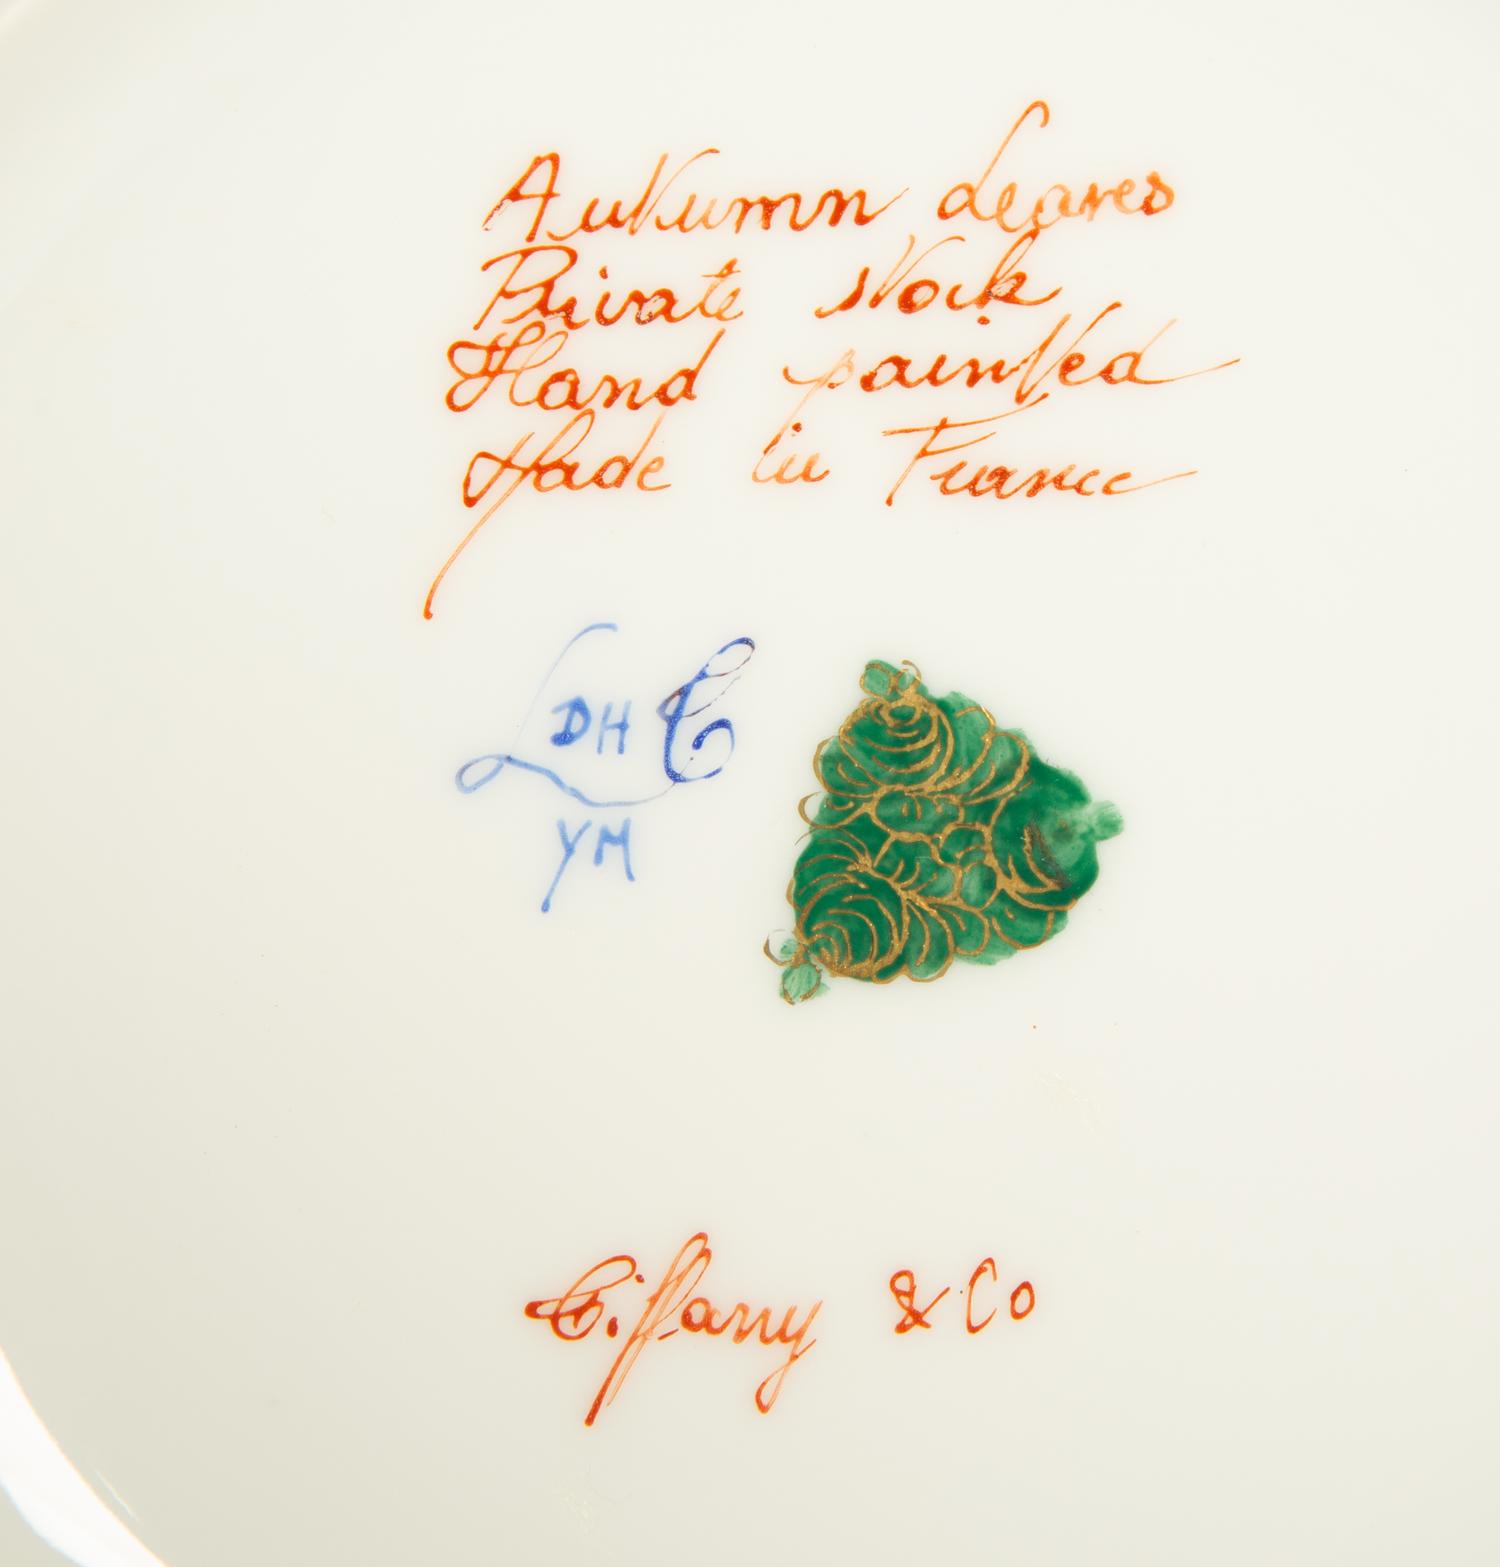 Autumn Leaves
Private Stock
Hand painted
Made in France
L DH C
YM
Tiffany & Co